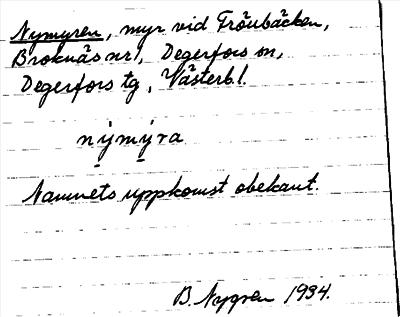 Nymyren, myr vid Tröubäcken,
Broknäs nr 1, Degerfors sn,
Degerfors tg, Västerb. l.
nỵ́mỵ́ra
Namnets uppkomst obekant.
B. Nygren 1934.